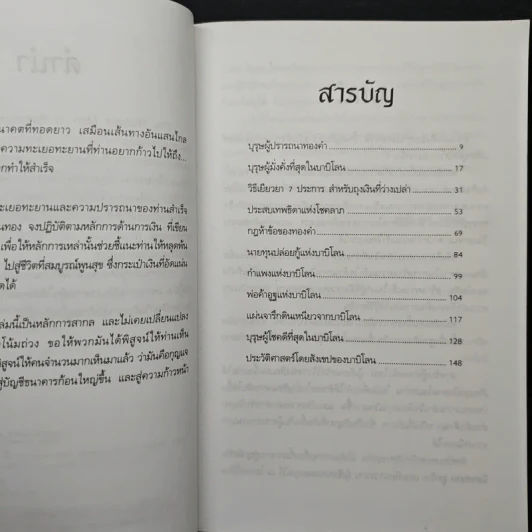 นาคตที่ทอดยาว เสมือนเส้นทางอันแสนไกล
ความทะเยอทะยานที่ท่านอยากก้าวไปให้ถึง...
กทำให้สำเร็จ
ะเยอทะยานและความปรารถนาของท่านสำเร็จ
งทอง จงปฏิบัติตามหลักการด้านการเงิน ที่เขียน
เพื่อให้หลักการเหล่านั้นช่วยชี้แนะท่านให้หลุดพ้น
ไปสู่ชีวิตที่สมบูรณ์พูนสุข ซึ่งกระเป๋าเงินที่อัดแน่น
ดได้
ล่มนี้เป็นหลักการสากล และไม่เคยเปลี่ยนแปลง
โน้มถ่วง ขอให้พวกมันได้พิสูจน์ให้ท่านเห็น
พิสูจน์ให้คนจำนวนมากเห็นมาแล้ว ว่ามันคือกุญแจ
สู่บัญชีธนาคารก้อนใหญ่ขึ้น และสู่ความก้าวหน้า
สารบัญ
บุรุษผู้ปรารถนาทองคำ 9
บุรุษผู้มั่งคั่งที่สุดในบาบิโลน 17
วิธีเยียวยา 7 ประการ สำหรับถุงเงินที่ว่างเปล่า 31
ประสบเทพธิดาแห่งโชคลาภ 53
กฎห้าข้อของทองคำ 69
นายทุนปล่อยกู้แห่งบาบิโลน 84
กำแพงแห่งบาบิโลน 99
พ่อค้าอูฐแห่งบาบิโลน 104
แผ่นจารึกดินเหนียวจากบาบิโลน 117
บุรุษผู้โชคดีที่สุดในบาบิโลน 128
ประวัติศาสตร์โดยสังเขปของบาบิโลน 148